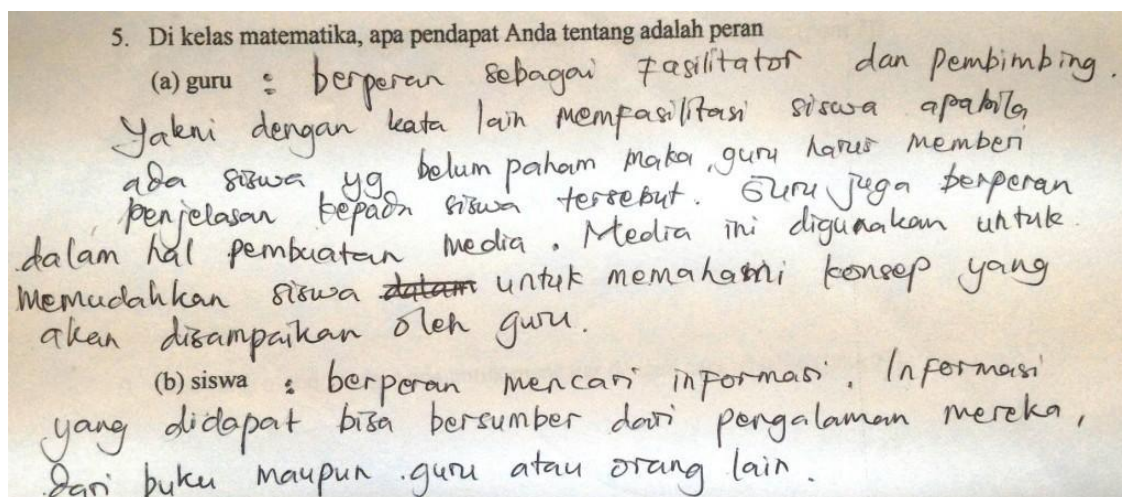 5. Di kelas matematika, apa pendapat Anda tentang adalah peran
(a) guru : berperan sebagai fasilitator dan pembimbing.
Yakni dengan kata lain memfasilitasi siswa apabila
ada siswa yg belum paham maka guru harus memberi
penjelasan kepada siswa tersebut. Guru juga berperan
dalam hal pembuatan media. Media ini digunakan untuk
memudahkan siswa dalam untuk memahami konsep yang
akan disampaikan oleh guru.
(b) siswa : berperan mencari informasi. Informasi
yang didapat bisa bersumber dari pengalaman mereka,
dari buku maupun guru atau orang lain.